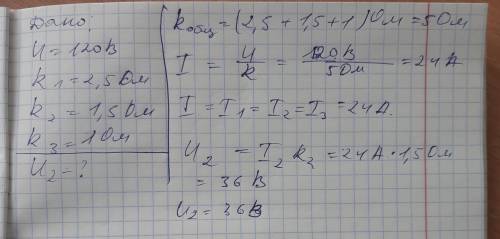 Дано:
U = 120 В
R1 = 2,5 Ом
R2 = 1,5 Ом
R3 = 1 Ом
U2 - ?
Rобщ = (2,5 + 1,5 + 1) Ом = 5 Ом
I = U/R = 120 В/5 Ом = 24 А
I = I1 = I2 = I3 = 24 А.
U2 = I2 R2 = 24 А · 1,5 Ом
= 36 В
U2 = 36 В